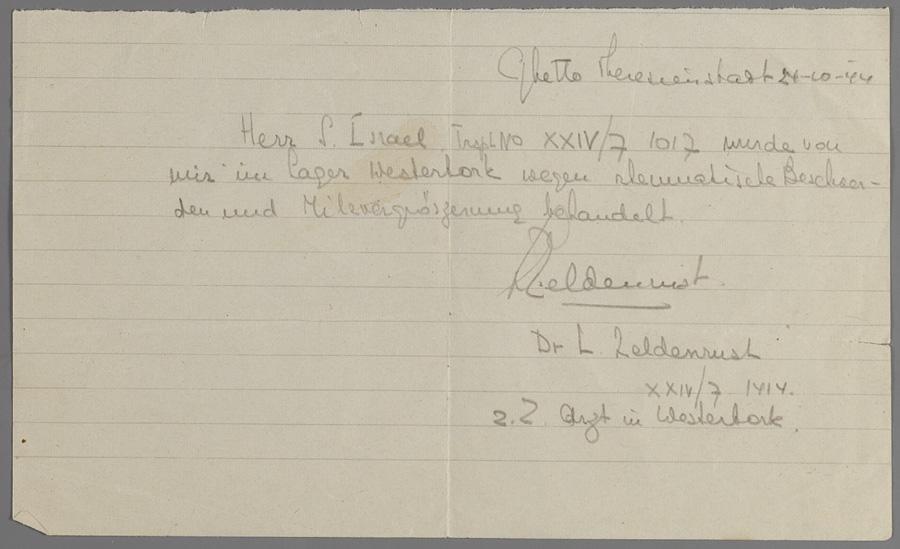 Ghetto Theresienstadt 24-10-44
Herr S. Israel Trspt No XXIV/7 1017 wurde von
mir im Lager Westerbork wegen rheumatische Beschwer-
den und Milzvergröszerung behandelt.
Zeldenrust.
Dr L. Zeldenrust
XXIV/7 1414.
z.Z. Arzt in Westerbork.